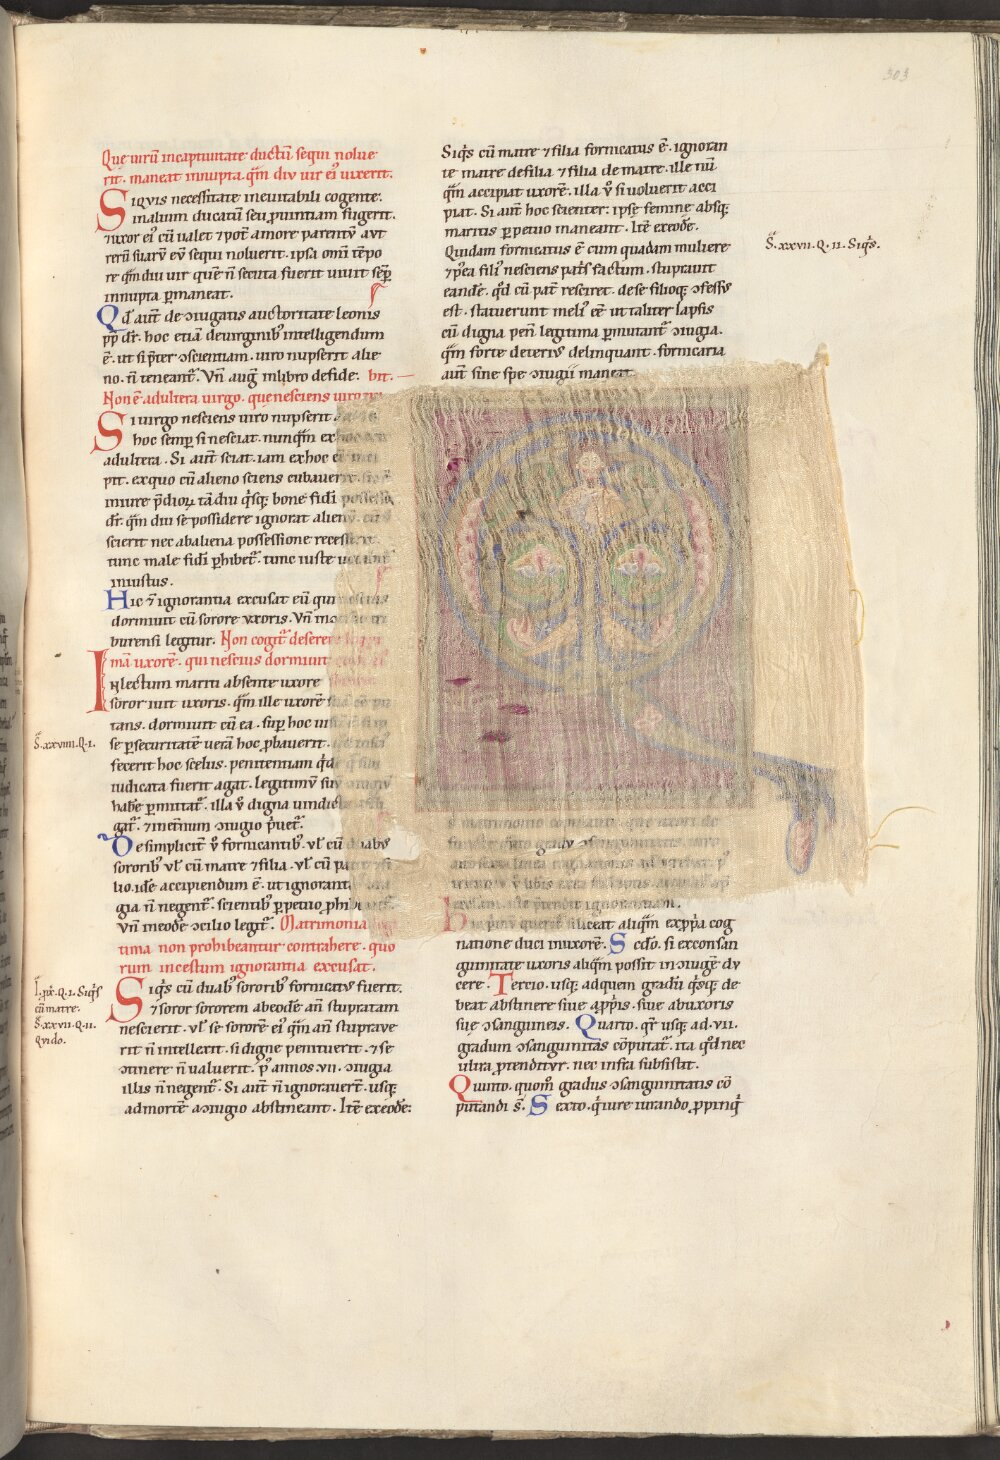 303
Que uirũ incaptiuitate ductũ sequi nolue
rit. maneat innupta. q̃m diu uir ei᷒ uixerit.
Siqvis necessitate ineuitabili cogente.
inalium ducatũ seu ꝓuintiam fugerit.
⁊uxor ei᷒ cũ ualet ⁊potẽ amore parentv̄ avt
rerũ suarv̄ ev̄ sequi noluerit. ipsa om̃i tẽpo
re q̃m diu uir quẽ ñ secuta fuerit uiuit sẽp
innupta ꝑmaneat.
Qd̕ aut̃ de ↄiugatis auctoritate leonis
pp̃ dr̃. hoc etiã deuirginib᷒ intelligendum
ẽ. ut si p̃ter ↄscientiam. uiro nupserit alie
no. ñ teneant᷑. Vñ aug̃ inlibro defide.
Non ẽ adultera uirgo. que nesciens uiro
Si uirgo nesciens uiro nupserit
hoc semꝑ si nesciat. nunq̃m ex
adultera. Si aut̃ sciat. iam exhoc
pit. exquo cũ alieno sciens cubauerit
iniure p̃dioꝝ tã diu q̃sq; bone fidi possesso
dr̃. q̃m diu se possidere ignorat alienũ.
scierit nec abaliena possessione recess
tunc male fidi ꝑhibet᷑. tunc iuste
iniustus.
Hic ⁊ ignorantia excusat eũ qui
dormiuit cũ sorore vxoris. Vñ
buriensi legitur. Non cogit᷑ deserere
mã uxorẽ. qui nescius dormiuit
Inlectum mariti absente uxore
soror iuit uxoris. q̃m ille uxorẽ
tans. dormiuit cũ ea. suꝑ hoc
se ꝑsecuritatẽ uerã hoc ꝓbauerit.
fecerit hoc scelus. penitentiam q̃d
iudicata fuerit agat. legitimv̄
habẽ ꝑmittat᷑. illa v̊ digna uindic
gat᷑. ⁊ inet̃num ↄiugio p̃uet᷑.
De simplicit̃ v̊ fornicantib᷒. vl̃ cũ duab᷒
sororib᷒ vl̃ cũ matre ⁊ filia. vl̃ cũ pa
lio. idẽ accipiendum ẽ. ut ignorant
gia ñ negent᷑. scientib᷒ ꝑpetuo ꝓhib
Vñ ineodẽ ↄcilio legit᷑. Matrimonia
tima non prohibeantur contrahere. quo
rum incestum ignorantia excusat.
Siq̃s cũ duab᷒ sororib᷒ fornicat᷒ fuerit.
⁊ soror sororem abeodẽ añ stupratam
nescierit. vl̃ se sororẽ ei᷒ q̃m añ stuprave
rit ñ intellexit. si digne penituerit. ⁊ se
ↄtinere ñ valuerit. p᷒ annos .vii. ↄiugia
illis ñ negent᷑. Si aut̃ ñ ignorauert̃. usq;
admortẽ aↄiugio abstineant. Itẽ exeodẽ:
S̃. xxviiii. Q. i.
Siq̃s
cũ matre.
S̃. xxvii. Q. ii.
Qvido.
Siq̃s cũ matre ⁊ filia fornicatus ẽ. ignoran
te matre defilia ⁊ filia de matre. ille nũ
q̃m accipiat uxorẽ. illa v̊ si uoluerit acci
piat. Si aut̃ hoc scienter: ipse femine absq;
maritis ꝑpetuo maneant. Itẽ exeodẽ.
Quidam fornicatus ẽ cum quadam muliere
⁊ p᷒ea fili᷒ nesciens pat̃s factum. stuprauit
eandẽ. qd̕ cũ pat̃ resciret. dese filioq; ↄfessv᷒
est. statuerunt meli᷒ eẽ ut taliter lapsis
cũ digna peñ legitima ꝑmittant᷑ ↄiugia.
q̃m forte deteriv᷒ delinquant. fornicaria
aut̃ sine spe ↄiugii maneat.
S̃. xxvii. Q. ii. Siq̃s.
liceat aliq̃m exꝓp̃a cog
natione duci inuxorẽ. Sc̃do. si exconsan
guinitate uxoris aliq̃m possit inↄiugẽ dv
cere. Tercio. usq; adquem gradũ q̃sq; de
beat abstinere siue aꝓp̃is. siue abuxoris
sue ↄsanguineis. Quarto. qr̃ usq; ad .vii.
gradum ↄsanguinitas cõputat᷑. ita qd̕ nec
ultra ꝓtenditur. nec infra subsistit.
Quinto. quom̃ gradus ↄsanguinitatis cõ
putandi s̃. Sexto. q̃ iure iurando ꝓpinq̃